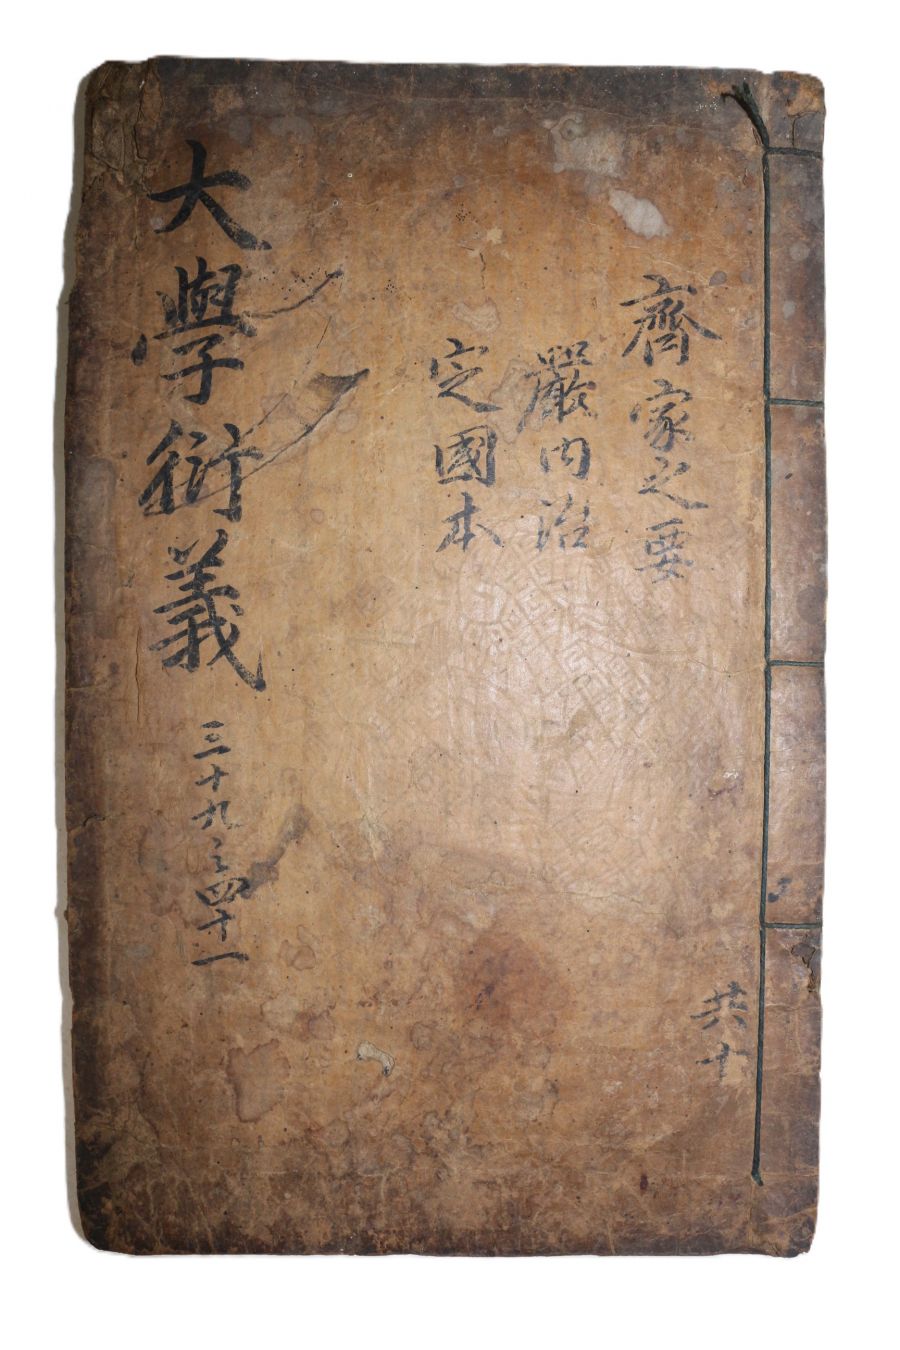 齊家之要
嚴內治
定國本
大學衍義
三十九之四十一
共十